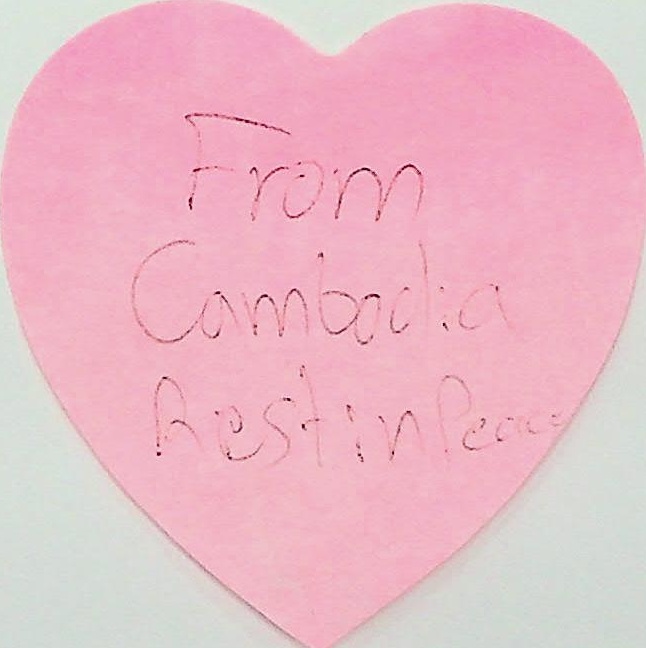 From
Cambodia
Rest in Peace